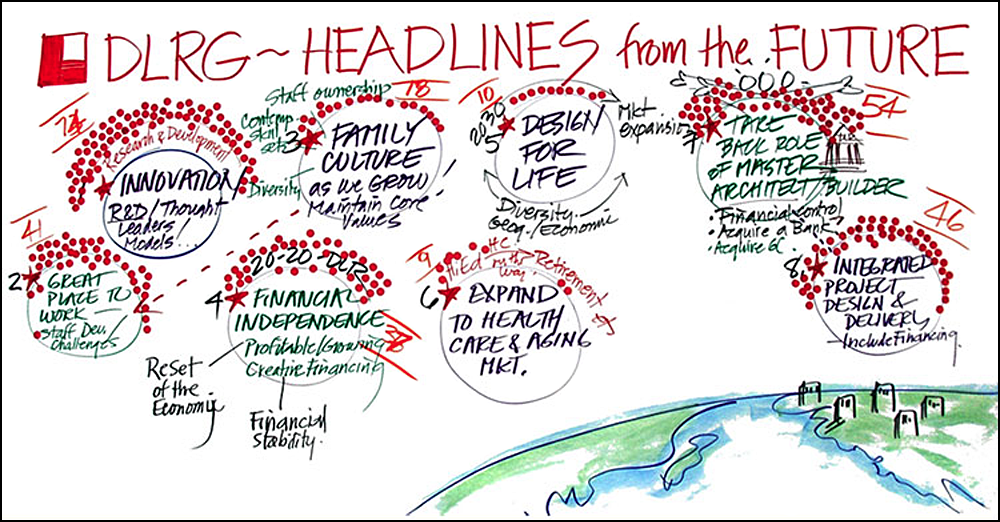 DLRG ~ HEADLINES from the FUTURE
Research & Development
INNOVATION
R&D/Thought
Leaders/
Models/...
Staff ownership
18
Contemp.
skill
sets
Diversity
3
FAMILY
CULTURE
AS WE GROW
Maintain Core
Values
10
2030
5
DESIGN
FOR
LIFE
Mkt
expansion
Diversity
Geog./Economic
54
7
TAKE
BACK ROLE
OF MASTER
ARCHITECT/BUILDER
• Financial control
• Acquire a Bank
• Acquire GC
41
2
GREAT
PLACE TO
WORK —
Staff Dev/
Challenges
20-20-DLR
4
FINANCIAL
INDEPENDENCE
Profitable/Growing
Creative Financing
Reset
of the
Economic
Financial
Stability.
9
HC.
Retirement
6
EXPAND
TO HEALTH
CARE & AGING
MKT.
46
8
INTEGRATED
PROJECT
DESIGN &
DELIVERY
— Include Financing.